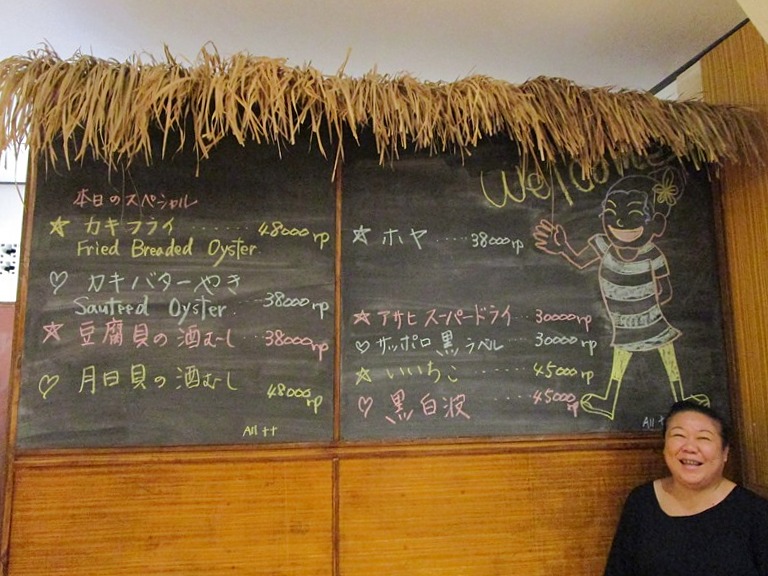 本日のスペシャル
☆ カキフライ ....... 48000 rp
Fried Breaded Oyster
♡ カキバターやき
Sauteed Oyster ... 38000 rp
☆ 豆腐貝の酒むし ... 38000 rp
♡ 月日貝の酒むし 48000 rp
All ++
Welcome
☆ ホヤ ..... 38000 rp
☆ アサヒ スーパードライ .. 30000 rp
♡ サッポロ 黒 ラベル .... 30000 rp
☆ いいちこ ..... 45000 rp
♡ 黒白波 ..... 45000 rp
All